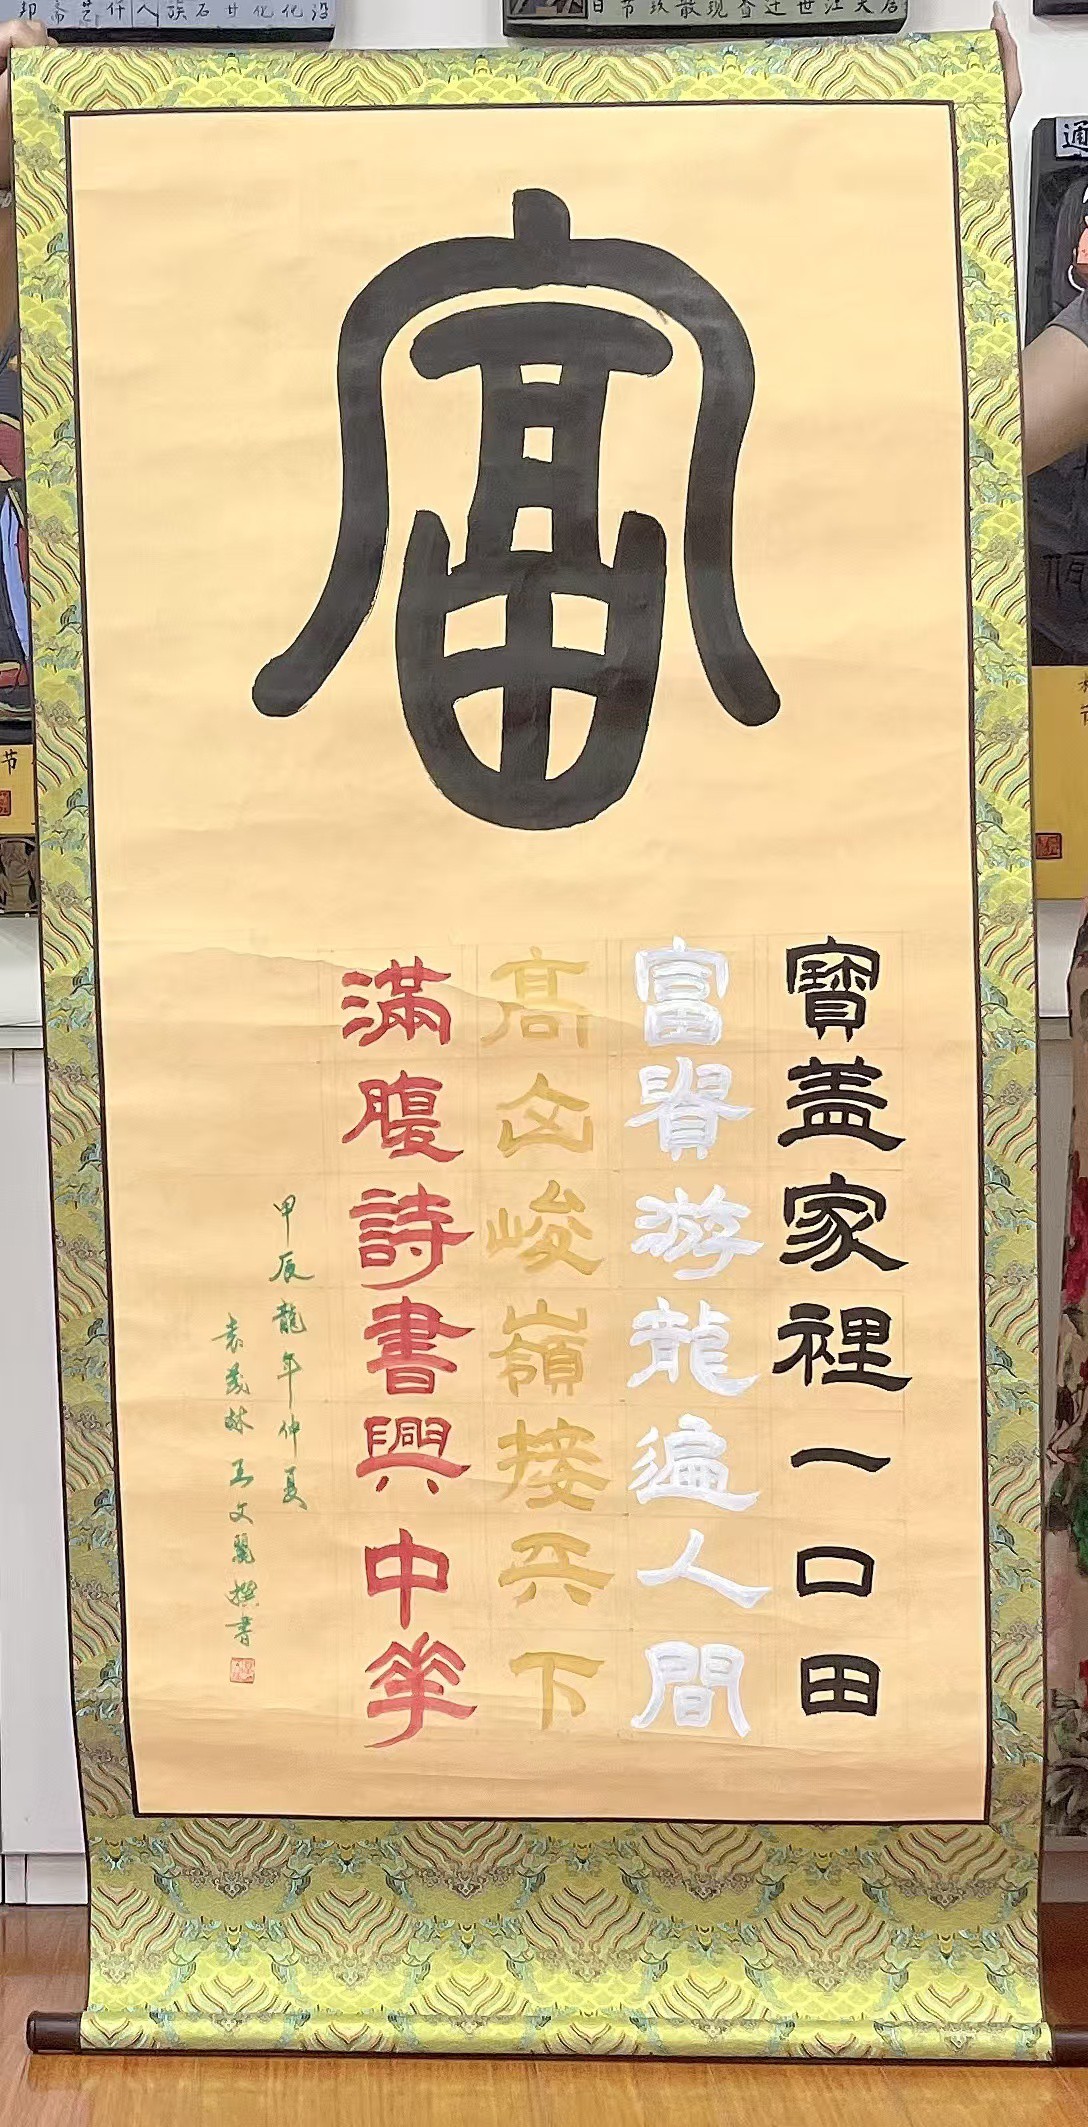 富
寶盖家裡一口田
富脊游龍遍人間
高山峻嶺接天下
滿腹詩書興中華
甲辰龍年仲夏
袁茂林 王文麗撰書